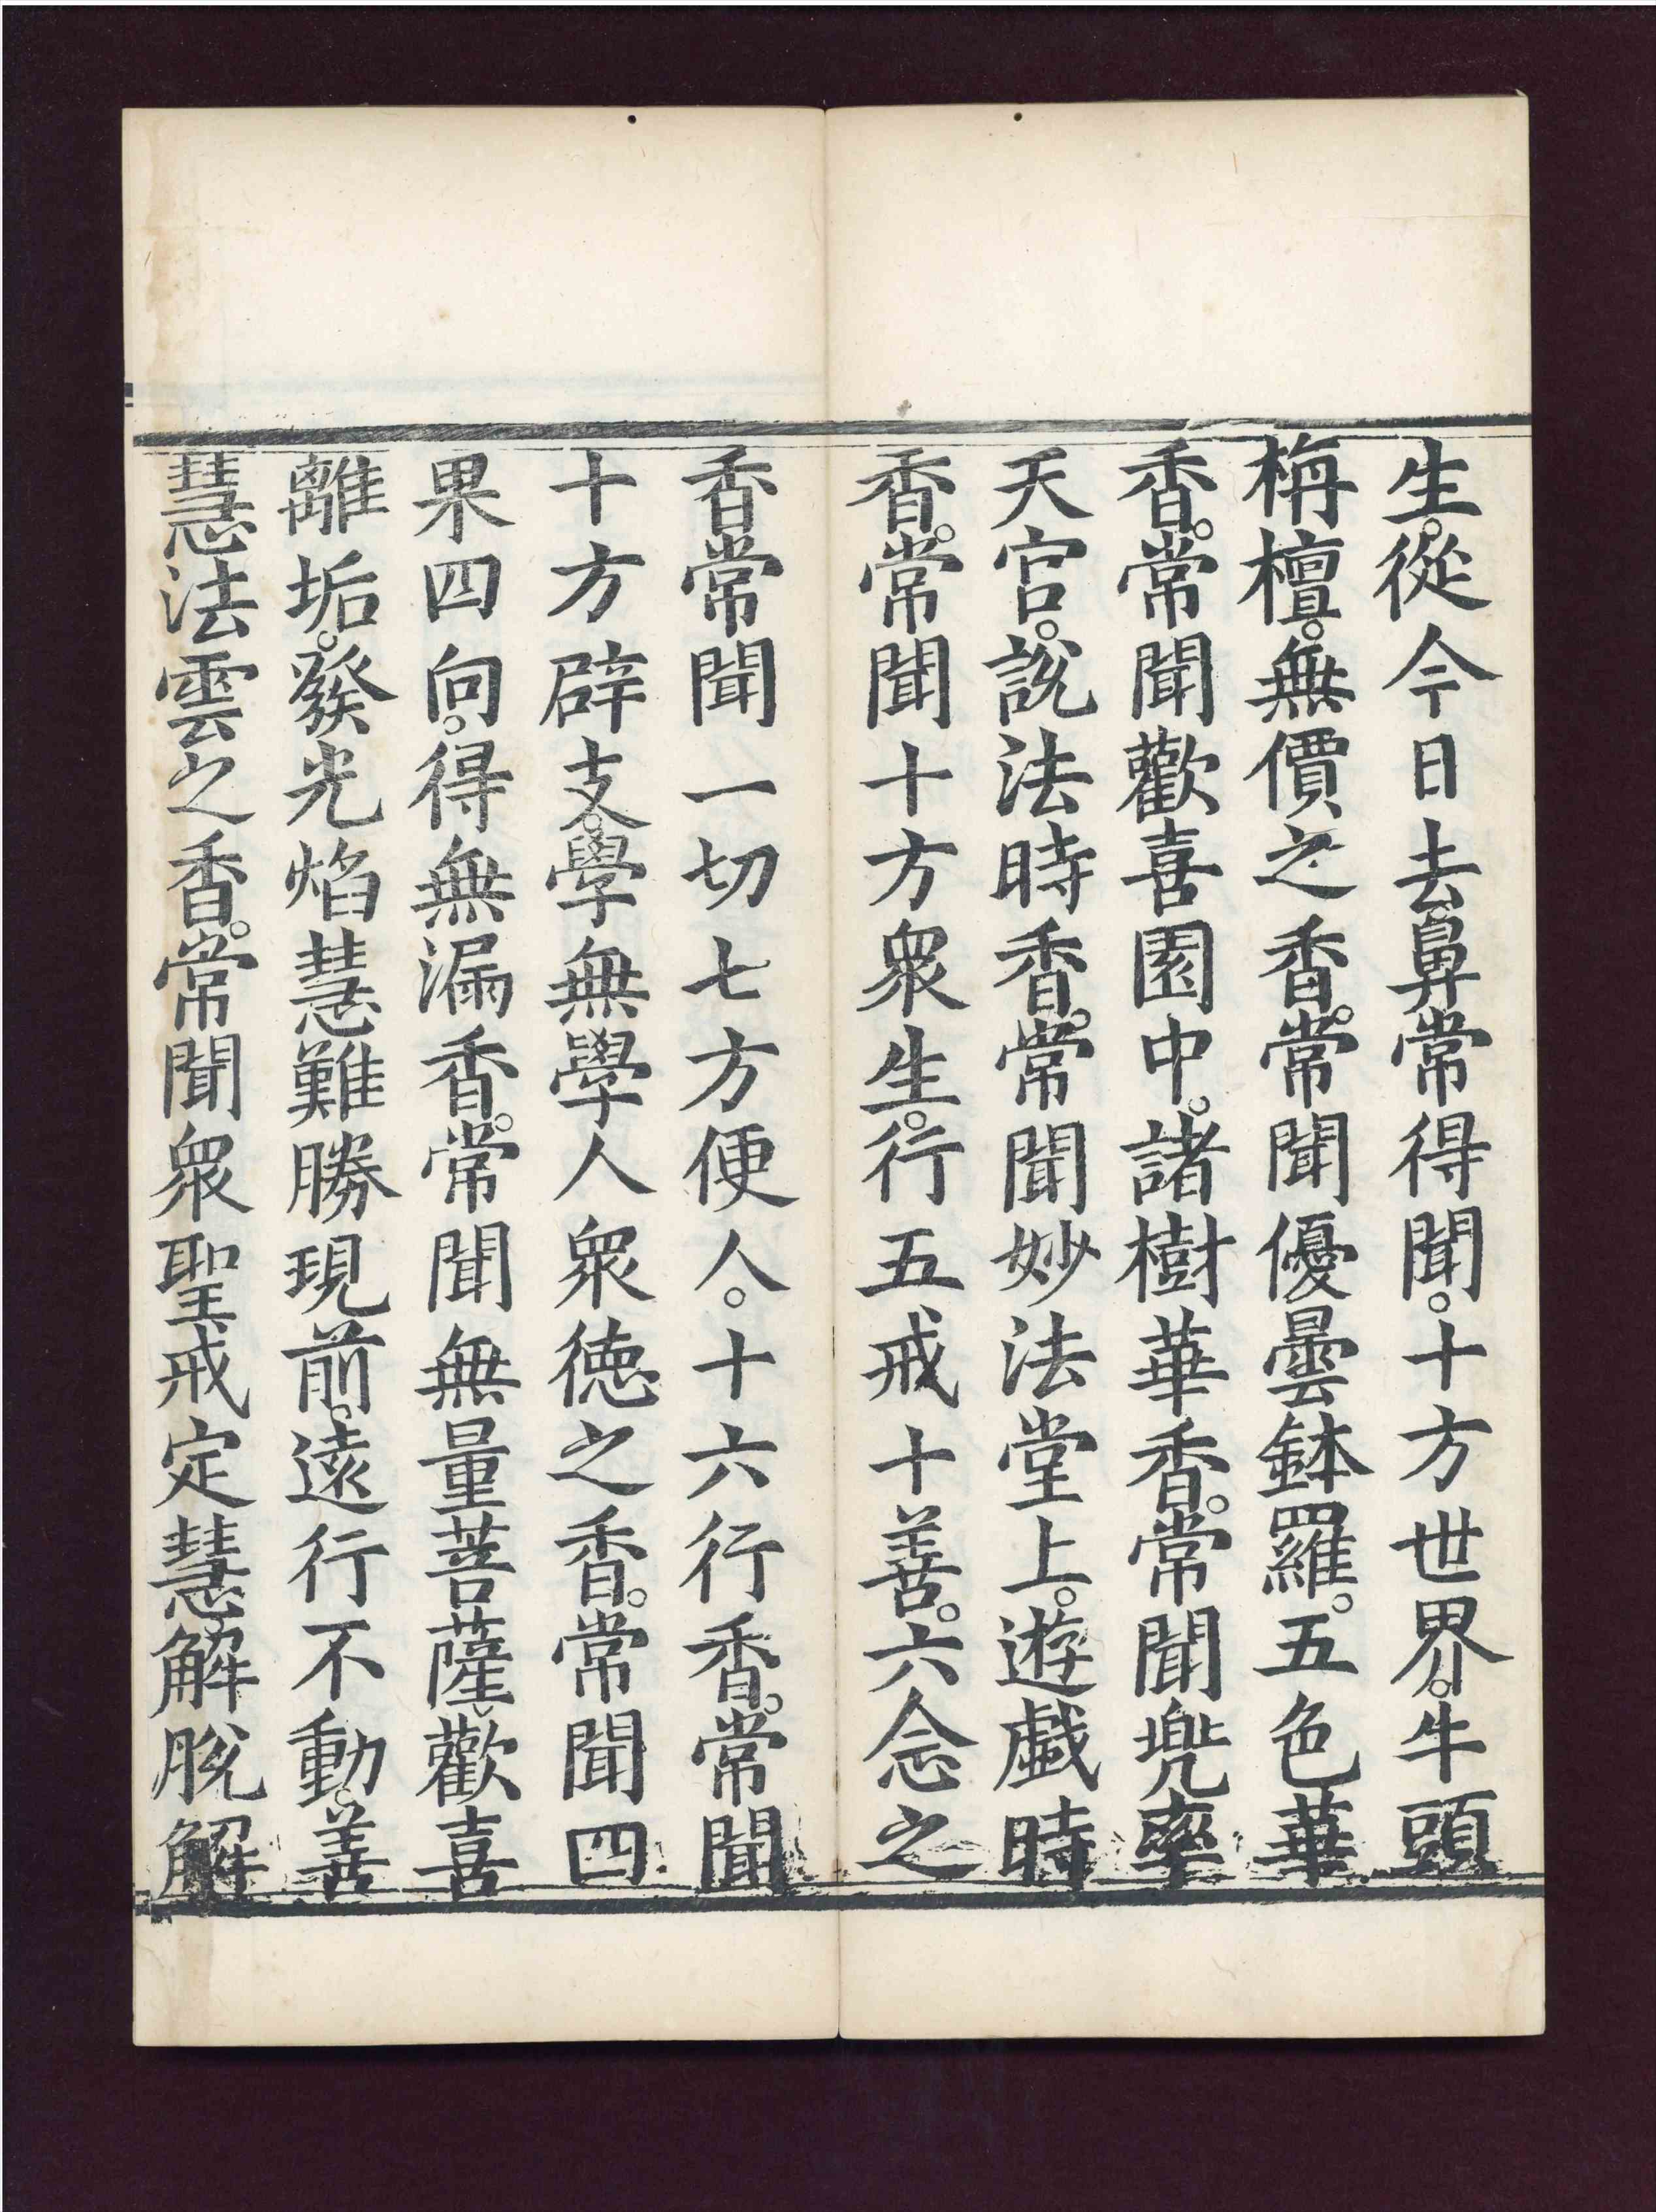 生。從今日去鼻常得聞。十方世界。牛頭
栴檀。無價之香。常聞優曇鉢羅。五色華
香。常聞歡喜園中。諸樹華香。常聞兠率
天宮。說法時香。常聞妙法堂上。遊戲時
香。常聞十方衆生。行五戒十善。六念之
香常聞一切七方便人。十六行香。常聞
十方辟支。學無學人衆徳之香。常聞四
果四向。得無漏香。常聞無量菩薩、歡喜
離垢。發光焰慧難勝現前。遠行不動。善
慧法雲之香。常聞衆聖戒定慧解脫解